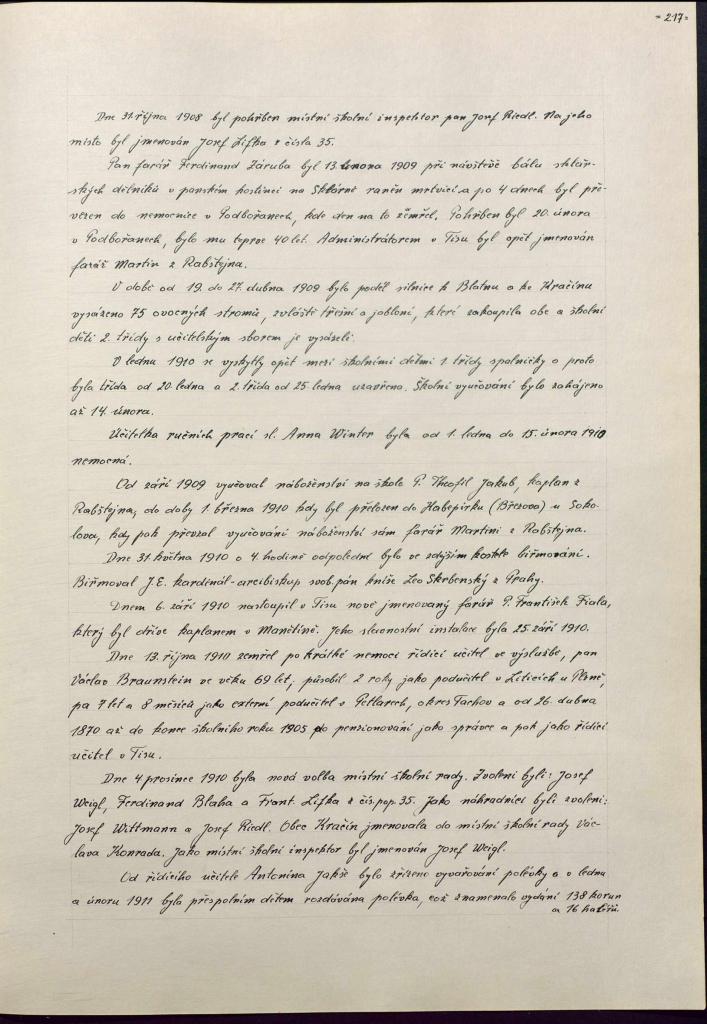 = 217 =
Dne 31. října 1908 byl pohřben místní školní inspektor pan Josef Riedl. Na jeho
místo byl jmenován Josef Lifka z čísla 35.
Pan farář Ferdinand Záruba byl 13. února 1909 při návštěvě bálu sklář-
ských dělníků v panském hostinci na Sklárně raněn mrtvicí a po 4 dnech byl pře-
vezen do nemocnice v Podbořanech, kde den na to zemřel. Pohřben byl 20. února
v Podbořanech, bylo mu teprve 40 let. Administrátorem v Tisu byl opět jmenován
farář Martin z Rabštejna.
V době od 19. do 27. dubna 1909 bylo podél silnice k Blatnu a ke Kračínu
vysázeno 75 ovocných stromů, zvláště třešní a jabloní, které zakoupila obec a školní
děti 2. třídy s učitelským sborem je vysázeli.
V lednu 1910 se vyskytly opět mezi školními dětmi 1. třídy spalničky a proto
byla třída od 20. ledna a 2. třída od 25. ledna uzavřena. Školní vyučování bylo zahájeno
až 14. února.
Učitelka ručních prací sl. Anna Winter byla od 1. ledna do 15. února 1910
nemocná.
Od září 1909 vyučoval náboženství na škole P. Theofil Jakub, kaplan z
Rabštejna, do doby 1. března 1910 kdy byl přeložen do Habspirku (Březova) u Soko-
lova, kdy pak převzal vyučování náboženství sám farář Martini z Rabštejna.
Dne 31. května 1910 o 4. hodině odpolední bylo ve zdejším kostele biřmování.
Biřmoval J.E. kardinál-arcibiskup svob. pán kníže Leo Skrbenský z Prahy.
Dnem 6. září 1910 nastoupil v Tisu nově jmenovaný farář P. František Fiala,
který byl dříve kaplanem v Manětíně. Jeho slavnostní instalace byla 25. září 1910.
Dne 13. října 1910 zemřel po krátké nemoci řídící učitel ve výslužbě, pan
Václav Braunstein ve věku 69 let, působil 2 roky jako podučitel v Liticích u Plzně,
pa 7 let a 8 měsíců jako externí podučitel v Petlarech, okres Tachov a od 26. dubna
1870 až do konce školního roku 1905 do penzionování jako správce a pak jako řídící
učitel v Tisu.
Dne 4. prosince 1910 byla nová volba místní školní rady. Zvoleni byli: Josef
Weigl, Ferdinand Blaha a Frant. Lifka z čís. pop. 35. Jako náhradníci byli zvoleni:
Josef Wittmann a Josef Riedl. Obec Kračín jmenovala do místní školní rady Vác-
lava Konrada. Jako místní školní inspektor byl jmenován Josef Weigl.
Od řídícího učitele Antonína Jakše bylo zřízeno vyvařování polévky a v lednu
a únoru 1911 byla přespolním dětem rozdávána polévka, což znamenalo vydání 138 korun
a 16 haléřů.